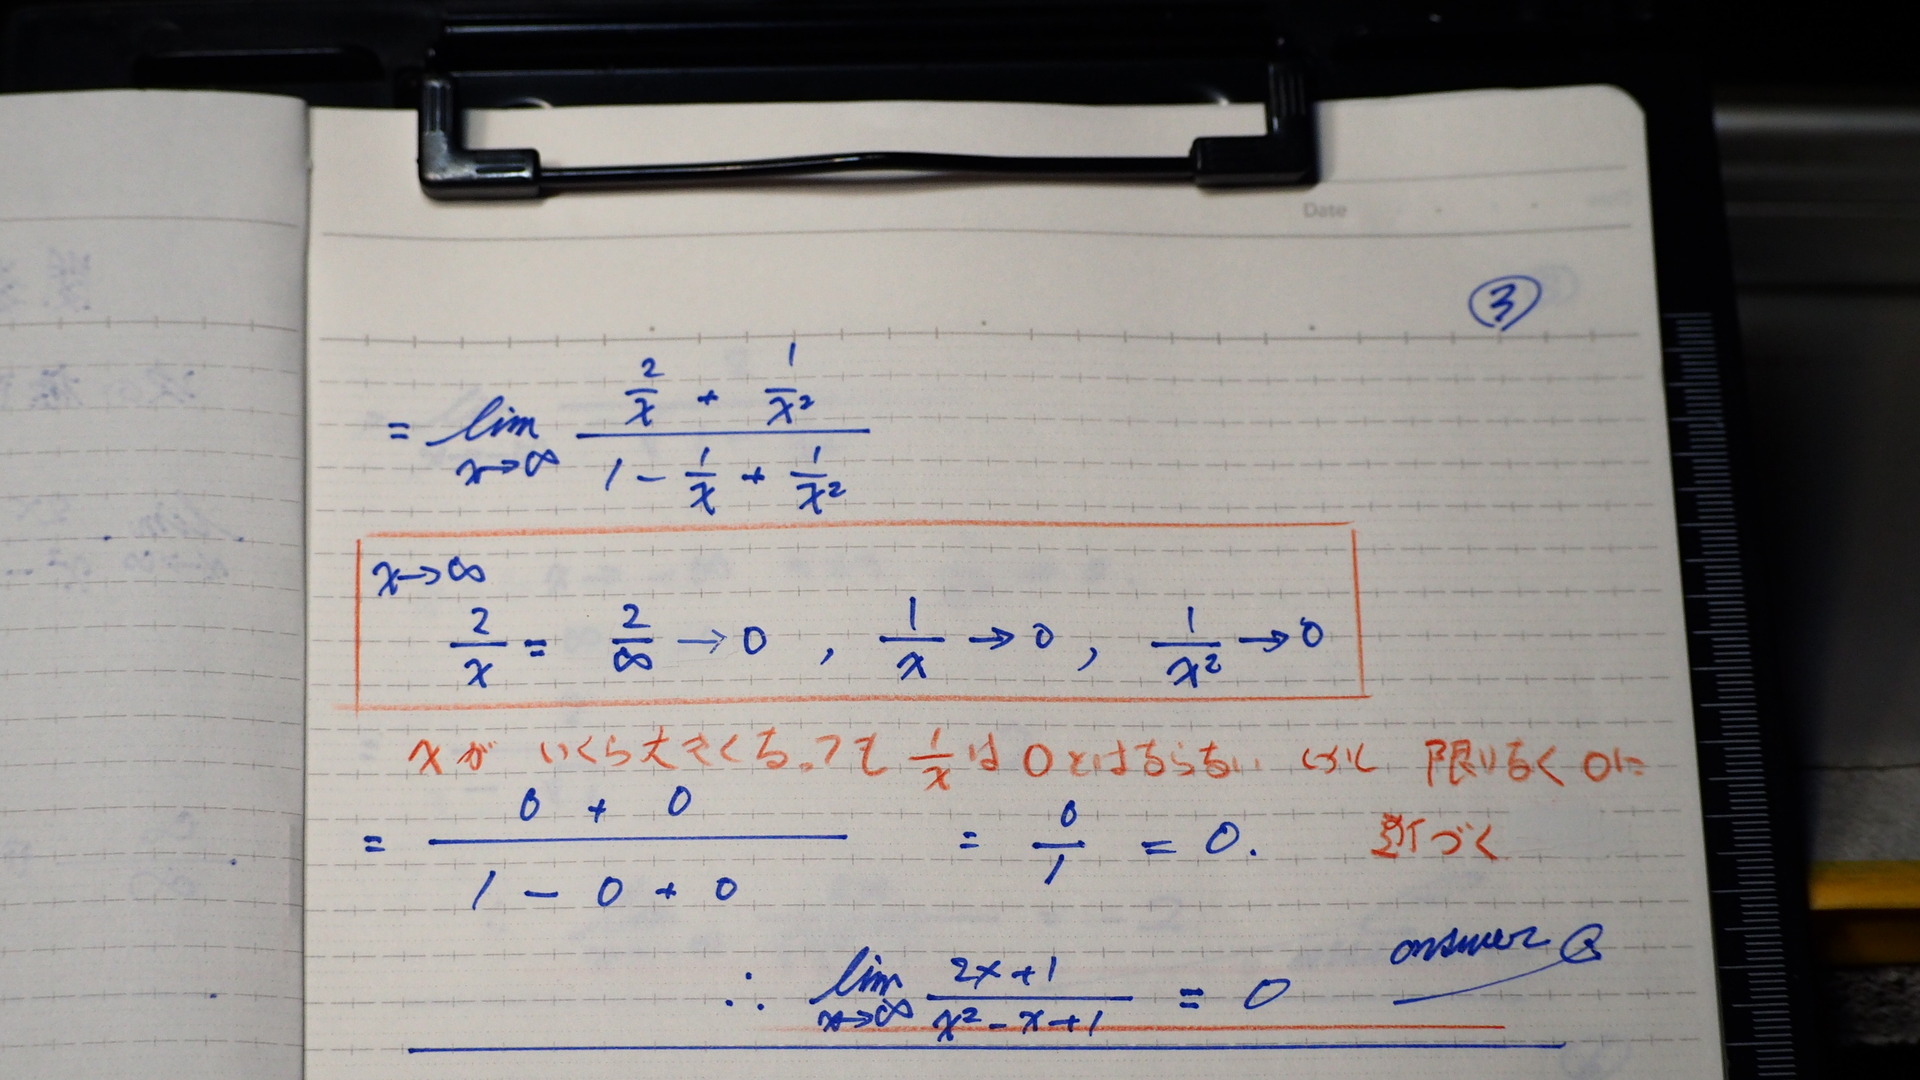 Date
③
= lim x→∞ (2/x + 1/x²) / (1 - 1/x + 1/x²)
x→∞
2/x = 2/∞ → 0 , 1/x → 0 , 1/x² → 0
xが いくら大きくなっても 1/x は 0とはならない 限りなく 0に
近づく
= (0 + 0) / (1 - 0 + 0) = 0/1 = 0.
∴ lim x→∞ (2x+1)/(x²-x+1) = 0 answer